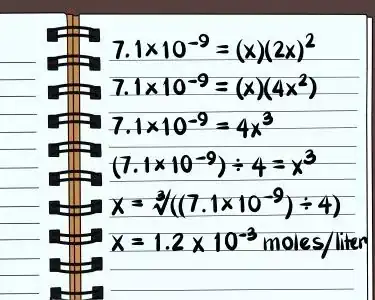 7.1×10⁻⁹ = (x)(2x)²
7.1×10⁻⁹ = (x)(4x²)
7.1×10⁻⁹ = 4x³
(7.1×10⁻⁹) ÷ 4 = x³
x = ∛((7.1×10⁻⁹) ÷ 4)
x = 1.2 x 10⁻³ moles/liter